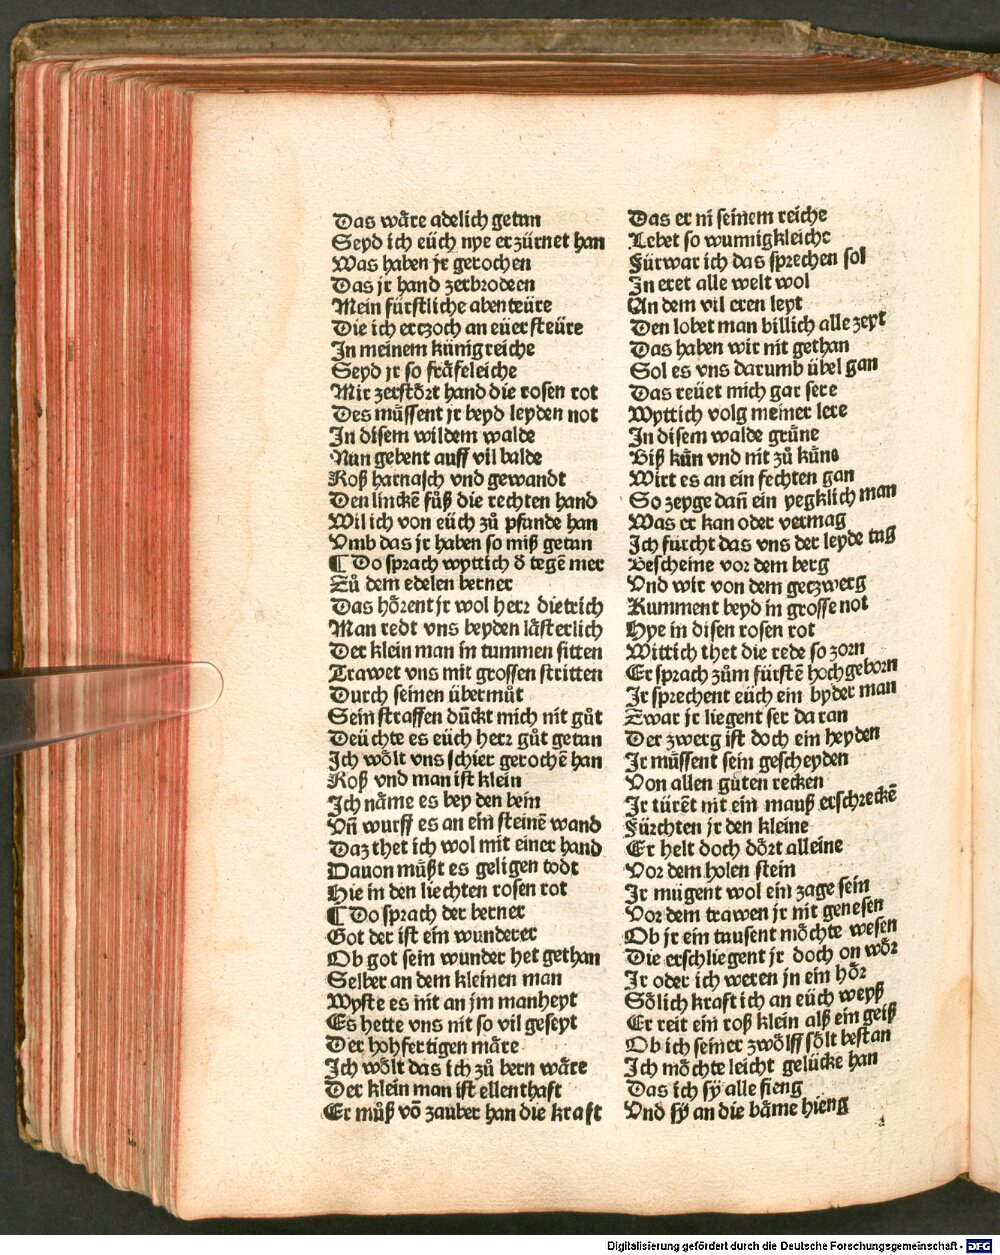 Das wåre adelich getan
Seyd ich eüch nye erzürnet han
Was haben jr gerochen
Das jr hand zerbrochen
Mein fürstliche abenteüre
Die ich erczoch an eüer steüre
In meinem künigreiche
Seyd jr so fråfeleiche
Mir zerstört hand die rosen rot
Des müssent jr beyd leyden not
In disem wildem walde
Nun gebent auff vil balde
Roß harnasch vnd gewandt
Den linckē fůß die rechten hand
Wil ich von eüch zů pfande han
Vmb das jr haben so miß getan
¶ Do sprach wyttich d̕ tegē mer
Zů dem edelen berner
Das hörent jr wol herr dietrich
Man redt vns beyden låsterlich
Der klein man in tummen sitten
Trawet vns mit grossen stritten
Durch seinen übermůt
Sein straffen dückt mich nit gůt
Deüchte es eüch herr gůt getan
Ich wölt vns schier gerochē han
Roß vnd man ist klein
Ich nåme es bey den bein
Vn̄ wurff es an ein steinē wand
Daz thet ich wol mit einer hand
Dauon müßt es geligen todt
Hie in den liechten rosen rot
¶ Do sprach der berner
Got der ist ein wunderer
Ob got sein wunder het gethan
Selber an dem kleinen man
Wyste es nit an jm manheyt
Es hette vns nit so vil geseyt
Der hohfertigen måre
Ich wölt das ich zů bern wåre
Der klein man ist ellenthaft
Er můß vō zauber han die kraft
Das er ni seinem reiche
Lebet so wunnigkleiche
Fürwar ich das sprechen sol
In eret alle welt wol
An dem vil eren leyt
Den lobet man billich alle zeyt
Das haben wir nit gethan
Sol es vns darumb übel gan
Das reüet mich gar sere
Wyttich volg meiner lere
In disem walde grüne
Biß kün vnd nit zů küne
Wirt es an ein fechten gan
So zeyge dan̄ ein yegklich man
Was er kan oder vermag
Ich fürcht das vns der leyde tag
Bescheine vor dem berg
Vnd wir von dem geczwerg
Kumment beyd in grosse not
Hye in disen rosen rot
Wittich thet die rede so zorn
Er sprach zům fürstē hochgeborn
Ir sprechent eüch ein byder man
Zwar jr liegent ser da ran
Der zwerg ist doch ein heyden
Ir müssent sein gescheyden
Von allen güten recken
Ir türēt nit ein mauß erschreckē
Fürchten jr den kleine
Er helt doch dört alleine
Vor dem holen stein
Ir mügent wol ein zage sein
Vor dem trawen jr nit genesen
Ob jr ein tausent möchte wesen
Die erschliegent jr doch on wör
Ir oder ich weren jn ein hör
Sölich kraft ich an eüch weyß
Er reit ein roß klein alß ein geiß
Ob ich seiner zwölff sölt bestan
Ich möchte leicht gelücke han
Das ich sÿ alle fieng
Vnd sÿ an die båme hieng
Digitalisierung gefördert durch die Deutsche Forschungsgemeinschaft - DFG